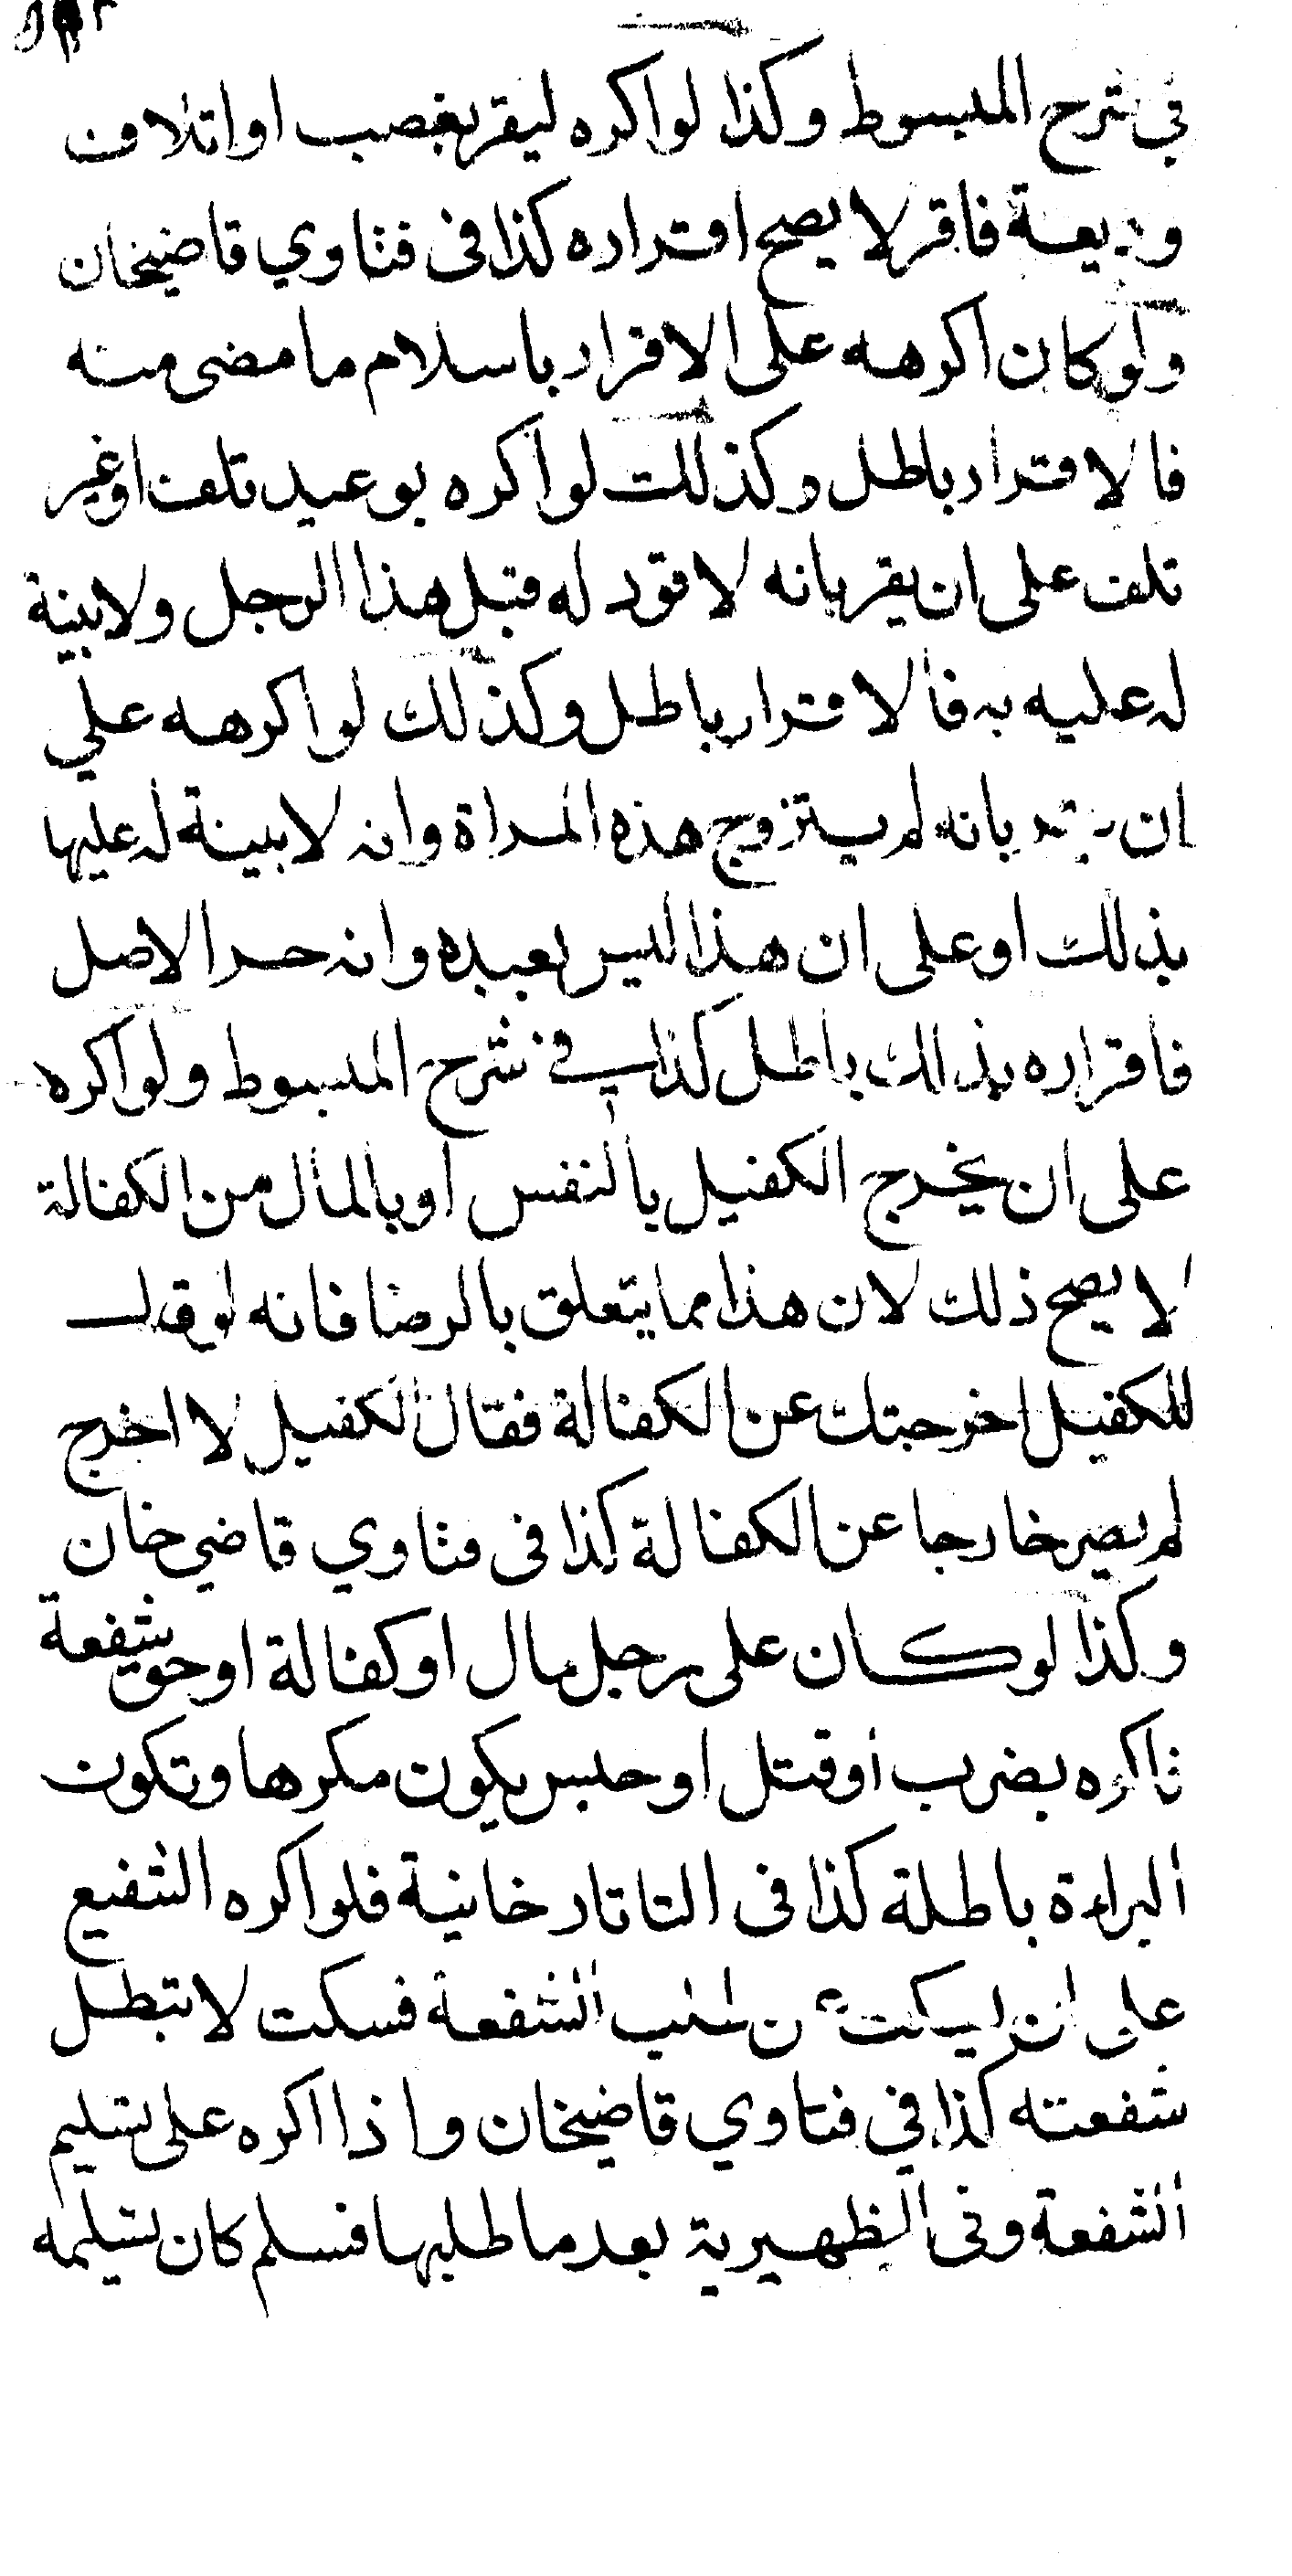 في شرح المبسوط وكذا لو اكره ليقر بغصب او اتلاف
وديعة فاقر لا يصح اقراره كذا فى فتاوي قاضيخان
ولو كان اكرهه على الاقرار باسلام ما مضى منه
فالاقرار باطل وكذلك لو اكره بوعيد تلف او غير
تلف على ان يقر بانه لا قود له قبل هذا الرجل ولا بينة
له عليه به فالاقرار باطل وكذلك لو اكرهه علي
ان يقر بانه لم يتزوج هذه المراة وانه لا بينة له عليها
بذلك او على ان هذا ليس بعبده وانه حر الاصل
فاقراره بذلك باطل كذا في شرح المبسوط ولو اكره
على ان يخرج الكفيل بالنفس او بالمال من الكفالة
لا يصح ذلك لان هذا مما يتعلق بالرضا فانه لو قال
للكفيل اخرجتك عن الكفالة فقال الكفيل لا اخرج
لم يصر خارجا عن الكفالة كذا فى فتاوي قاضي خان
وكذا لو كان على رجل مال او كفالة او حق شفعة
فاكره بضرب او قتل او حبس يكون مكرها وتكون
البراءة باطلة كذا فى التاتارخانية فلو اكره الشفيع
على ان يسكت عن طلب الشفعة فسكت لا تبطل
شفعته كذا في فتاوي قاضيخان واذا اكره على تسليم
الشفعة وفى الظهيرية بعد ما طلبها فسلم كان تسليمه